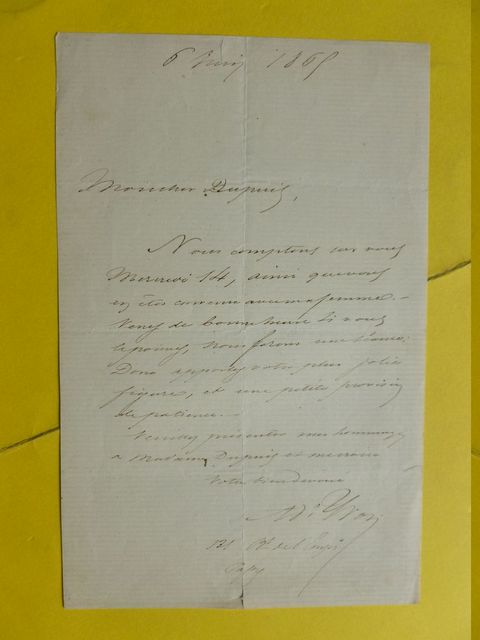 6 Juin 1865
Mon cher Dupuis,
Nous comptons sur vous
Mercredi 14, ainsi que vous
en êtes convenu avec ma femme. -
Venez de bonne heure si vous
le pouvez, nous ferons une séance.
Donc apportez votre plus jolie
figure, et une petite provision
de patience. -
Veuillez présenter mes hommages
à Madame Dupuis et me croire
Votre bien dévoué
Ad. Yvon
121 de
Passy